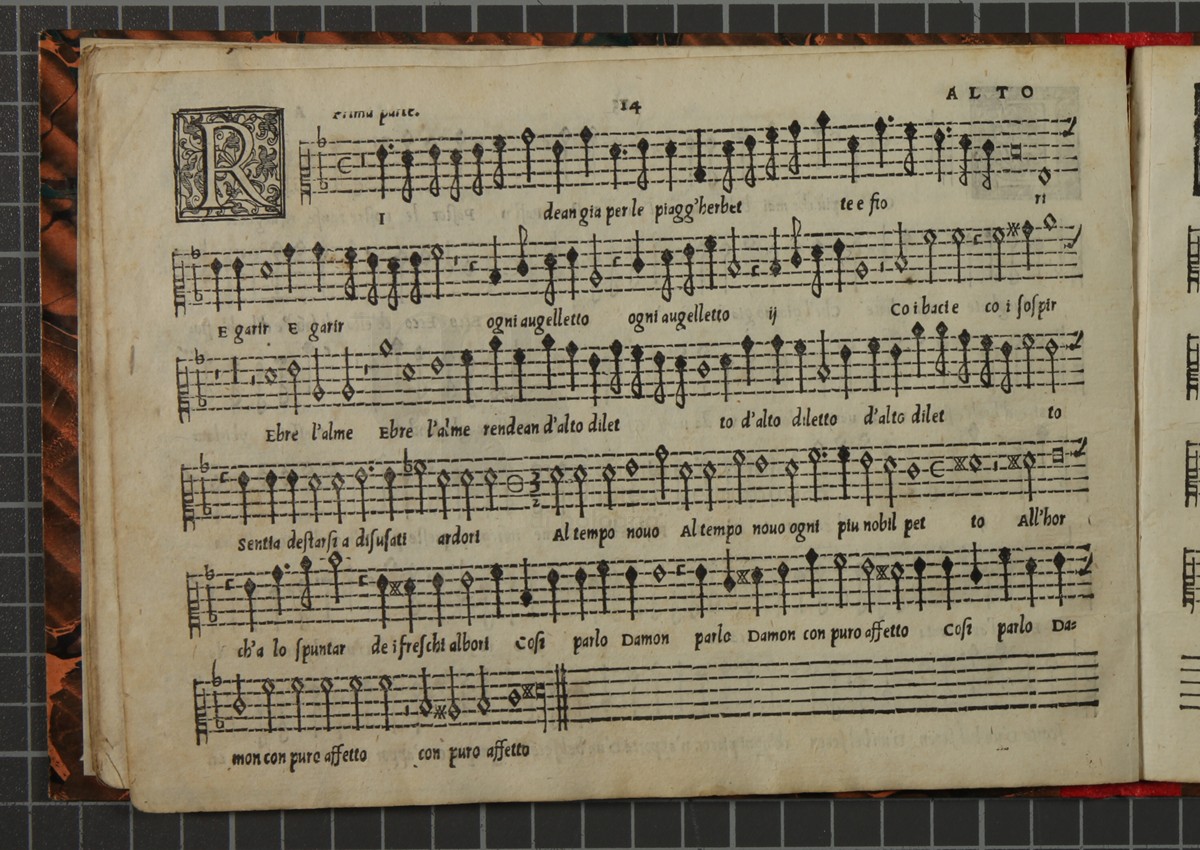 Prima parte. 14 ALTO
R I dean gia per le piagg'herbet te e fio ri
E garir E garir ogni augelletto ogni augelletto ij Co i baci e co i sospir
Ebre l'alme Ebre l'alme rendean d'alto dilet to d'alto diletto d'alto dilet to
Sentia destarsi a disusati ardori Al tempo nouo Al tempo nouo ogni piu nobil pet to All'hor
ch'a lo spuntar de i freschi albori Cosi parlo Damon parlo Damon con puro affetto Cosi parlo Da=
mon con puro affetto con puro affetto